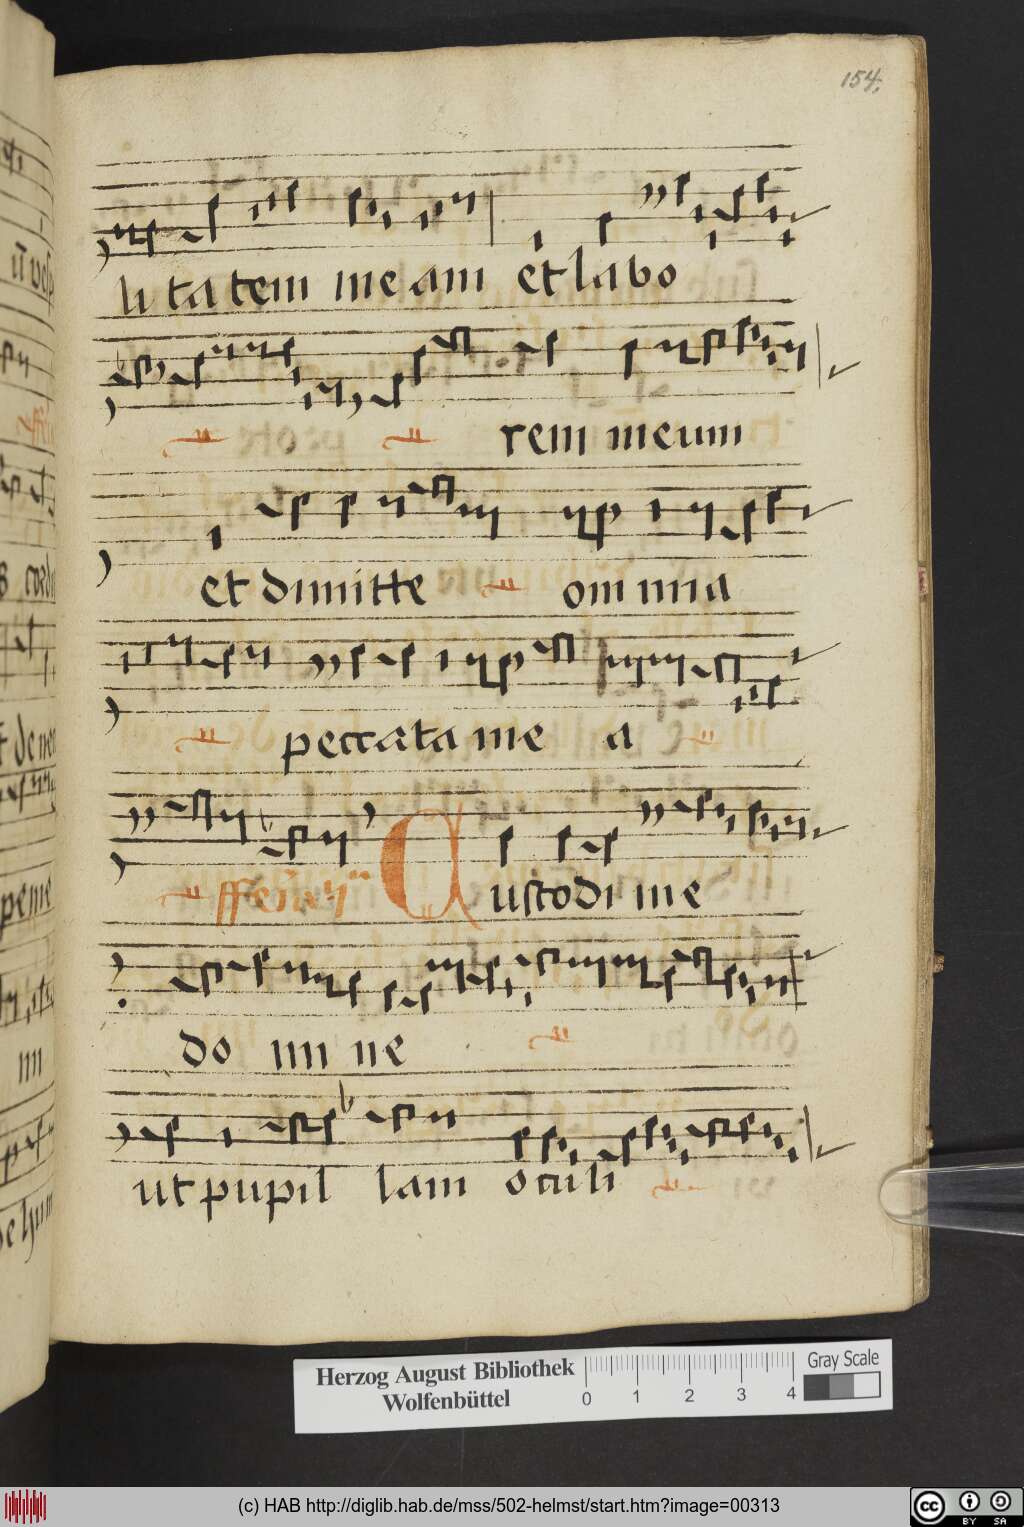 154,
li ta tem me am et labo
rem meum
et dimitte om nia
peccata me a
Custodi me
do mi ne
ut pupil lam oculi
Herzog August Bibliothek
Wolfenbüttel
0 1 2 3 4
Gray Scale
(c) HAB http://diglib.hab.de/mss/502-helmst/start.htm?image=00313
cc BY SA